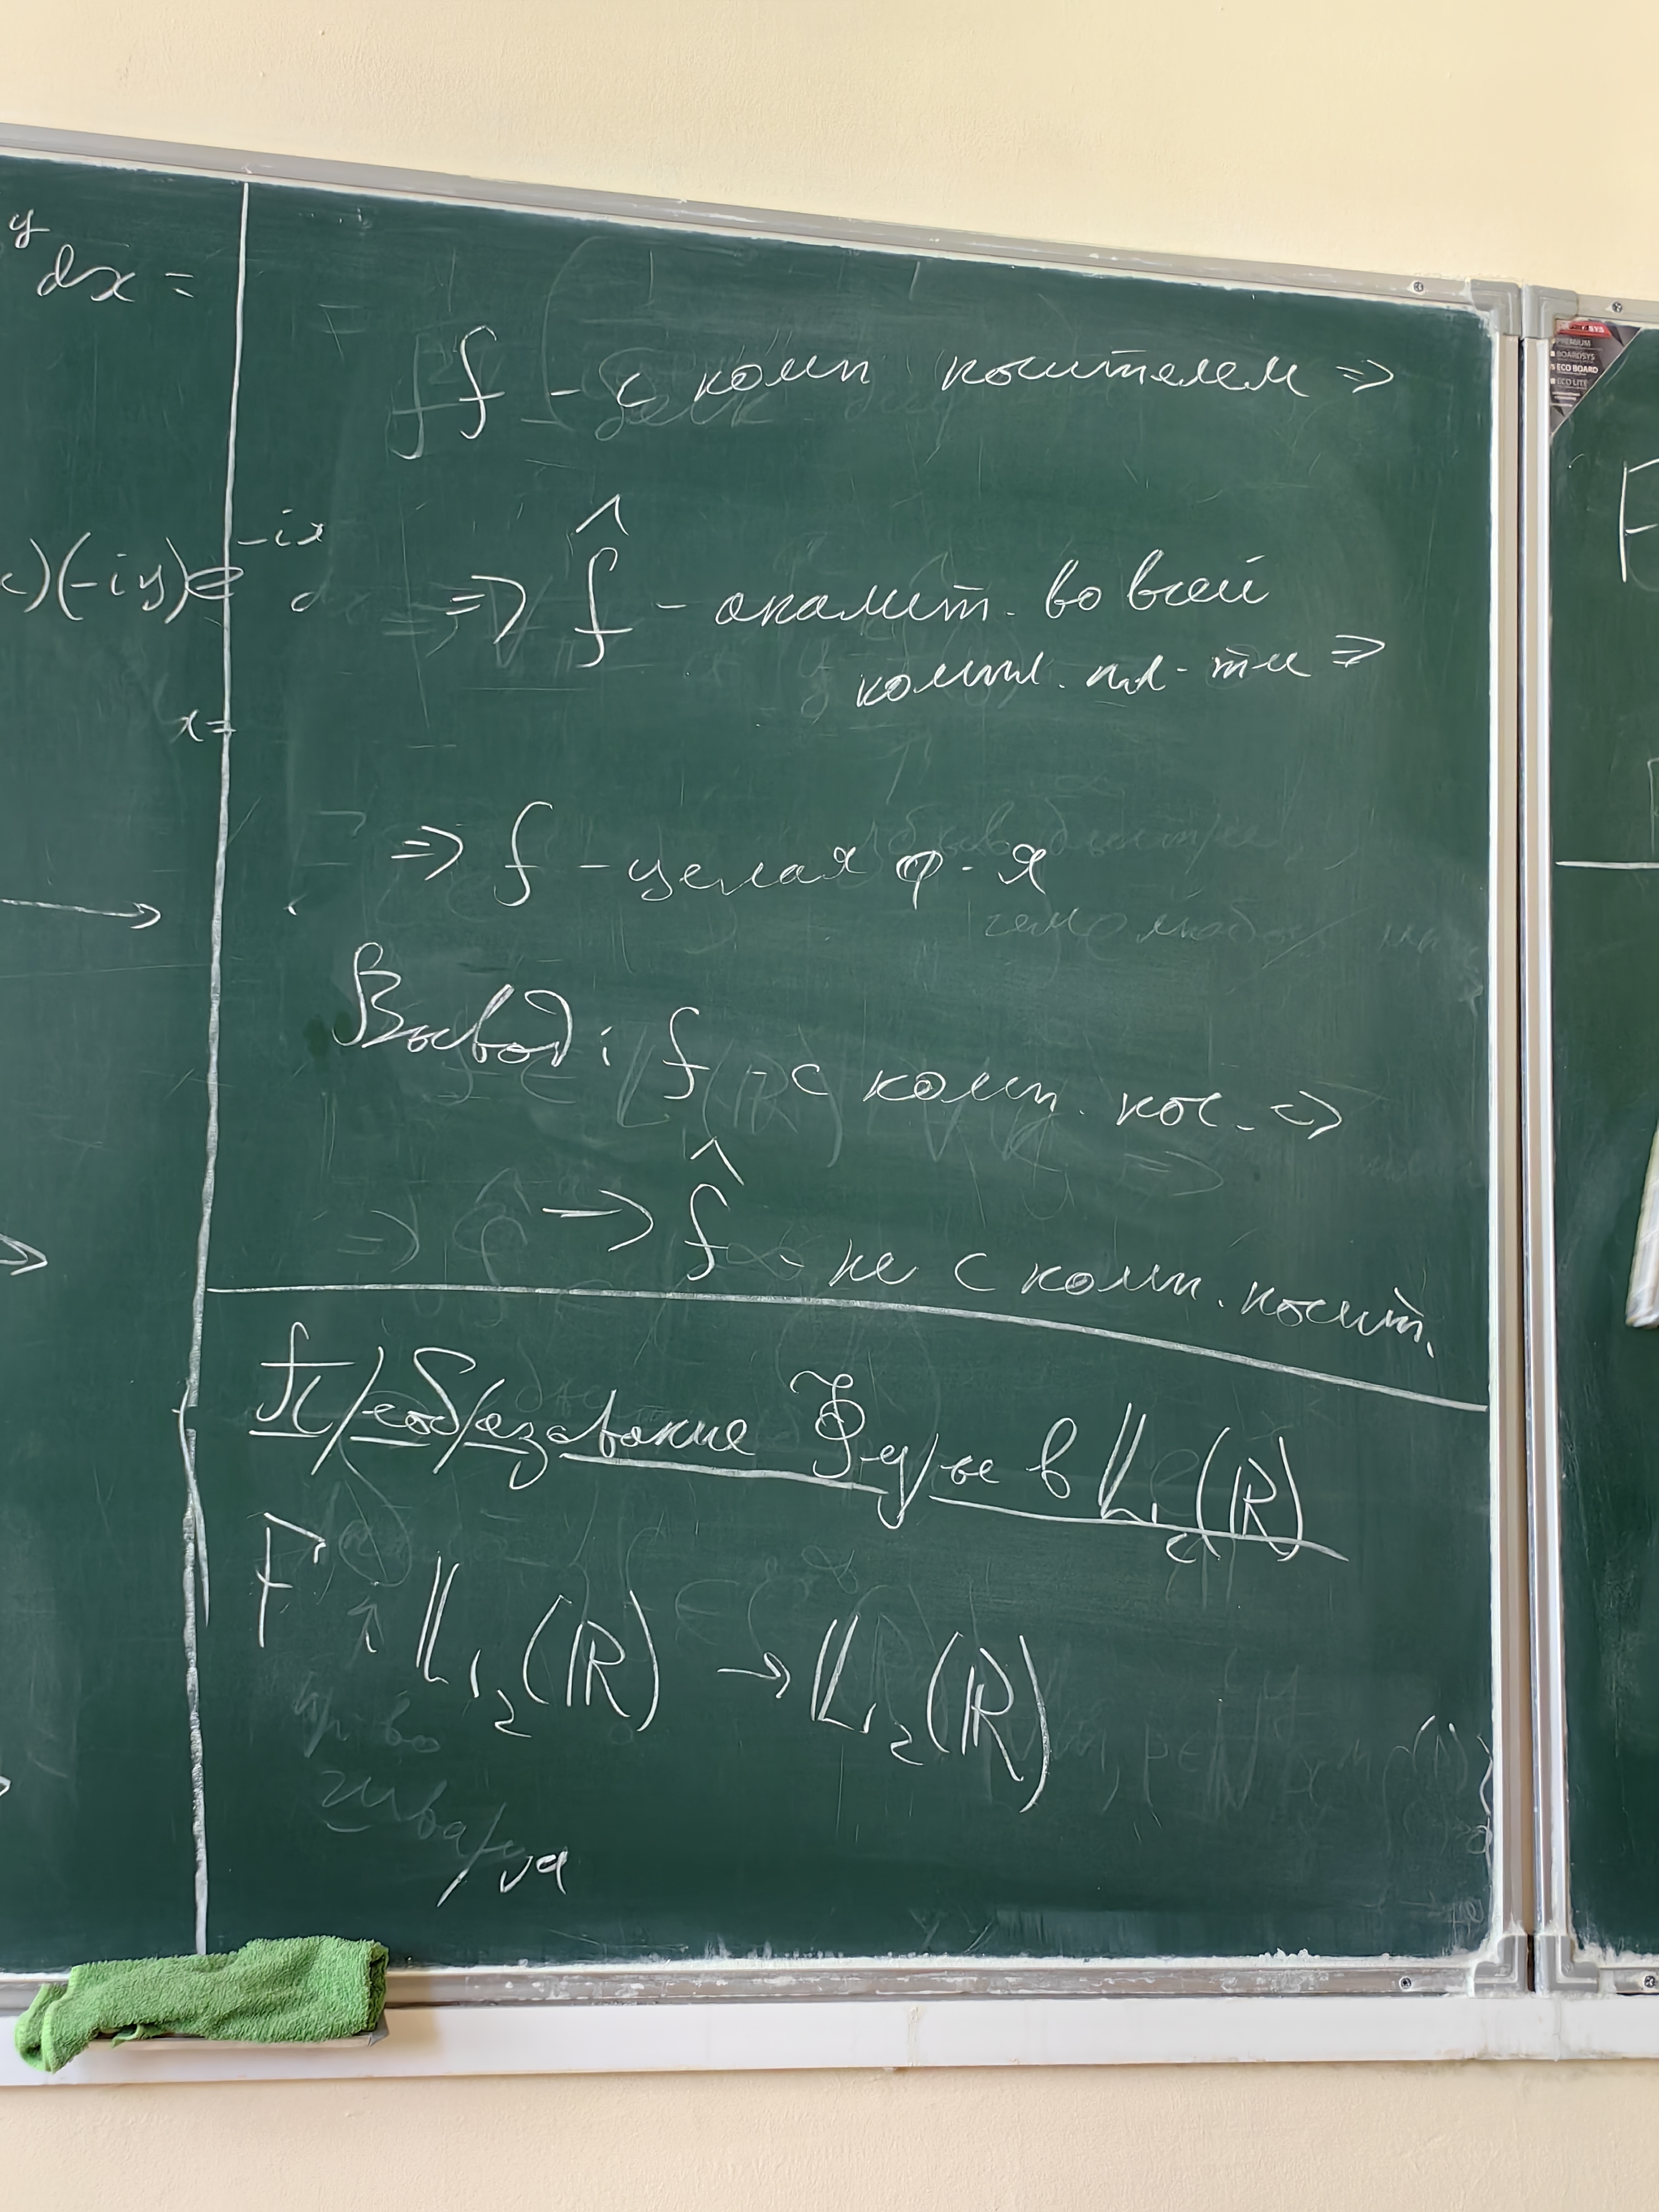 y
dx =
)(-iy)e^{-ix}
x=
f - с комп носителем ⇒
⇒ f̂ - аналит. во всей
компл. пл-ти ⇒
⇒ f - целая ф-я
Вывод: f - с комп. нос. ⇒
→ f̂ - не с комп. носит.
Преобразование Фурье в L₂(ℝ)
F : L₂(ℝ) → L₂(ℝ)
пр-во
Шварца
BOARDSYS
PREMIUM
BOARDSYS
ECO BOARD
ECO LITE
F